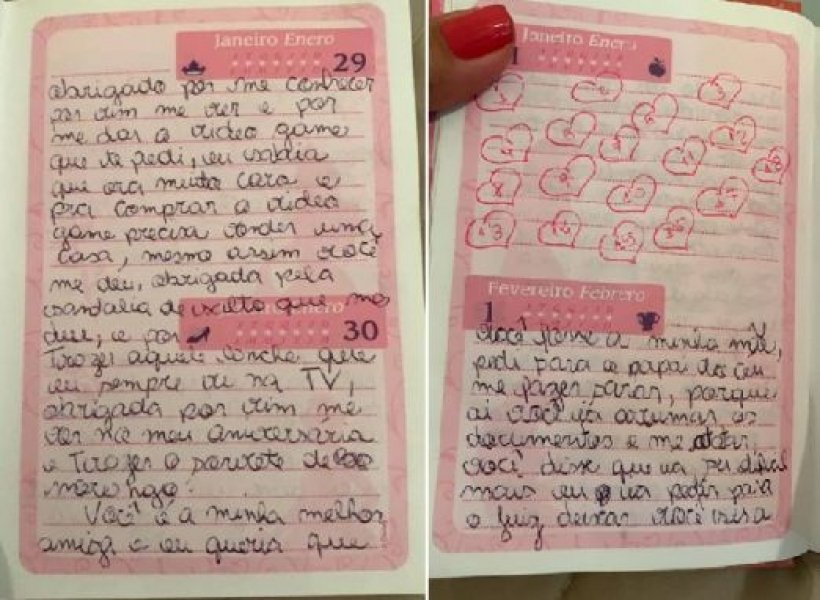 Janeiro Enero
29
obrigado por me conhecer
por vim me ver e por
me dar o video game
que te pedi, eu sabia
que era muito cara e
pra comprar o video
game precisa vender uma
casa, mesmo assim você
me deu, obrigada pela
sandalia de salto que me
deu, e por
30
Trazer aquele lanche que
eu sempre vi na TV,
obrigada por vim me
ver no meu aniversário
e Trazer o sorvete de
morango.
Você é a minha melhor
amiga e eu queria que
Janeiro Enero
1
2
3
4
8
9
11
12
13
Fevereiro Febrero
1
você fosse a minha mãe,
pedi para o papai do ceu
me fazer parar, porque
ai você ia arrumar os
documentos e me
você disse que ia ser dificil
mais eu ia pedir para
o juiz deixar você